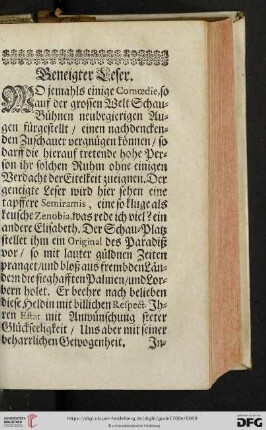 Geneigter Leser.
WO jemahls einige Comœdie, so
auf der grossen Welt Schau-
Bühnen neubegierigen Au-
gen fürgestellt / einen nachdencken-
den Zuschauer vergnügen können / so
darff die hierauf tretende hohe Per-
son ihr solchen Ruhm ohne einigen
Verdacht der Eitelkeit zueignen. Der
geneigte Leser wird hier sehen eine
tapffere Semiramis, eine so kluge als
keusche Zenobia, was rede ich viel? ein
andere Elisabeth. Der Schau-Platz
stellet ihm ein Original des Paradiß
vor / so mit lauter güldnen Zeiten
pranget / und bloß aus frembden Län-
dern die sieghafften Palmen / und Lor-
bern holet. Er beehre nach belieben
diese Heldin mit billichen Respect. Ih-
ren Estat mit Anwünschung steter
Glückseeligkeit / Uns aber mit seiner
beharrlichen Gewogenheit.
In-
UNIVERSITÄTS-
BIBLIOTHEK
HEIDELBERG
https://digi.ub.uni-heidelberg.de/diglit/
© Universitätsbibliothek Heidelberg
gefördert durch die
DFG